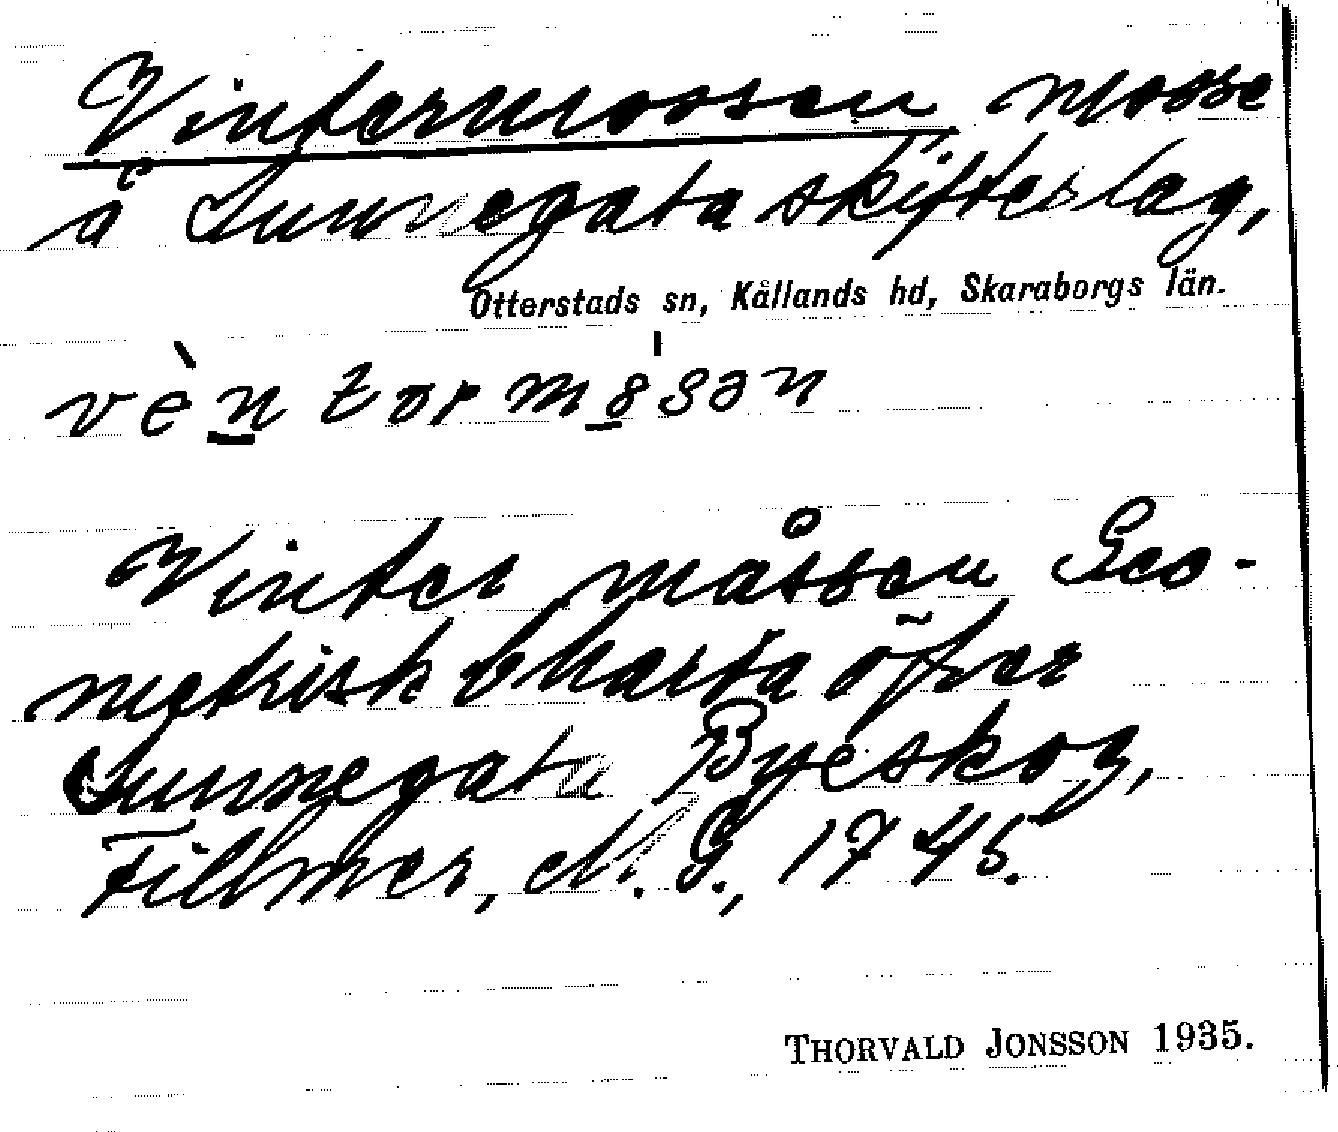 Vintermossen mosse
å Sunnegata skifteslag,
Otterstads sn, Kållands hd, Skaraborgs län.
vèn tər m
Vinter måssen Geo-
metrisk Charta öfver
Sunnegata Byeskog,
Fillmer, N. G., 1745.
THORVALD JONSSON 1935.